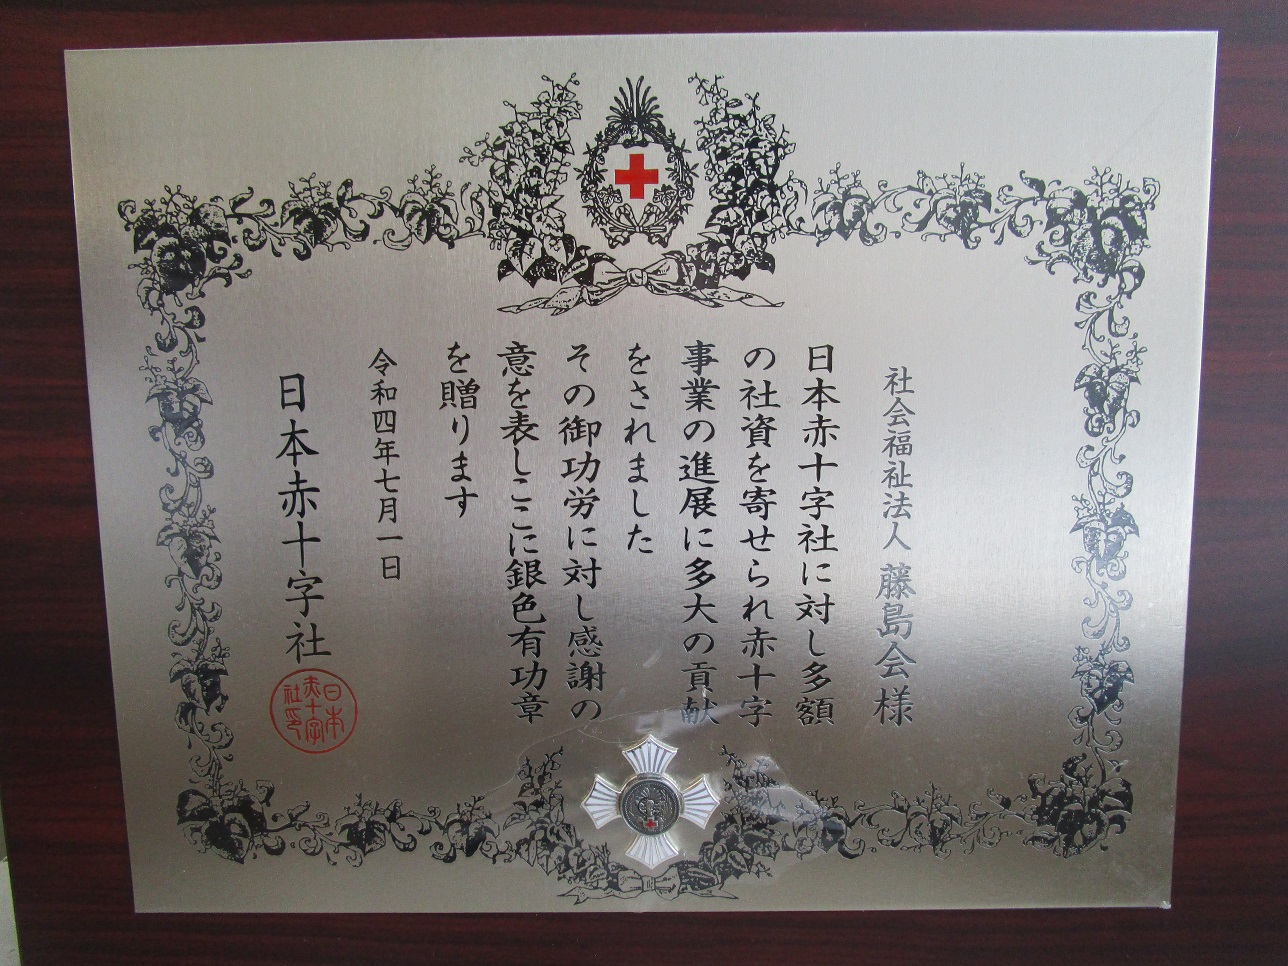 社会福祉法人 藤島会様
日本赤十字社に対し多額
の社資を寄せられ赤十字
事業の進展に多大の貢献
をされました
その御功労に対し感謝の
意を表しここに銀色有功章
を贈ります
令和四年七月一日
日本赤十字社
日本
赤十字
社印